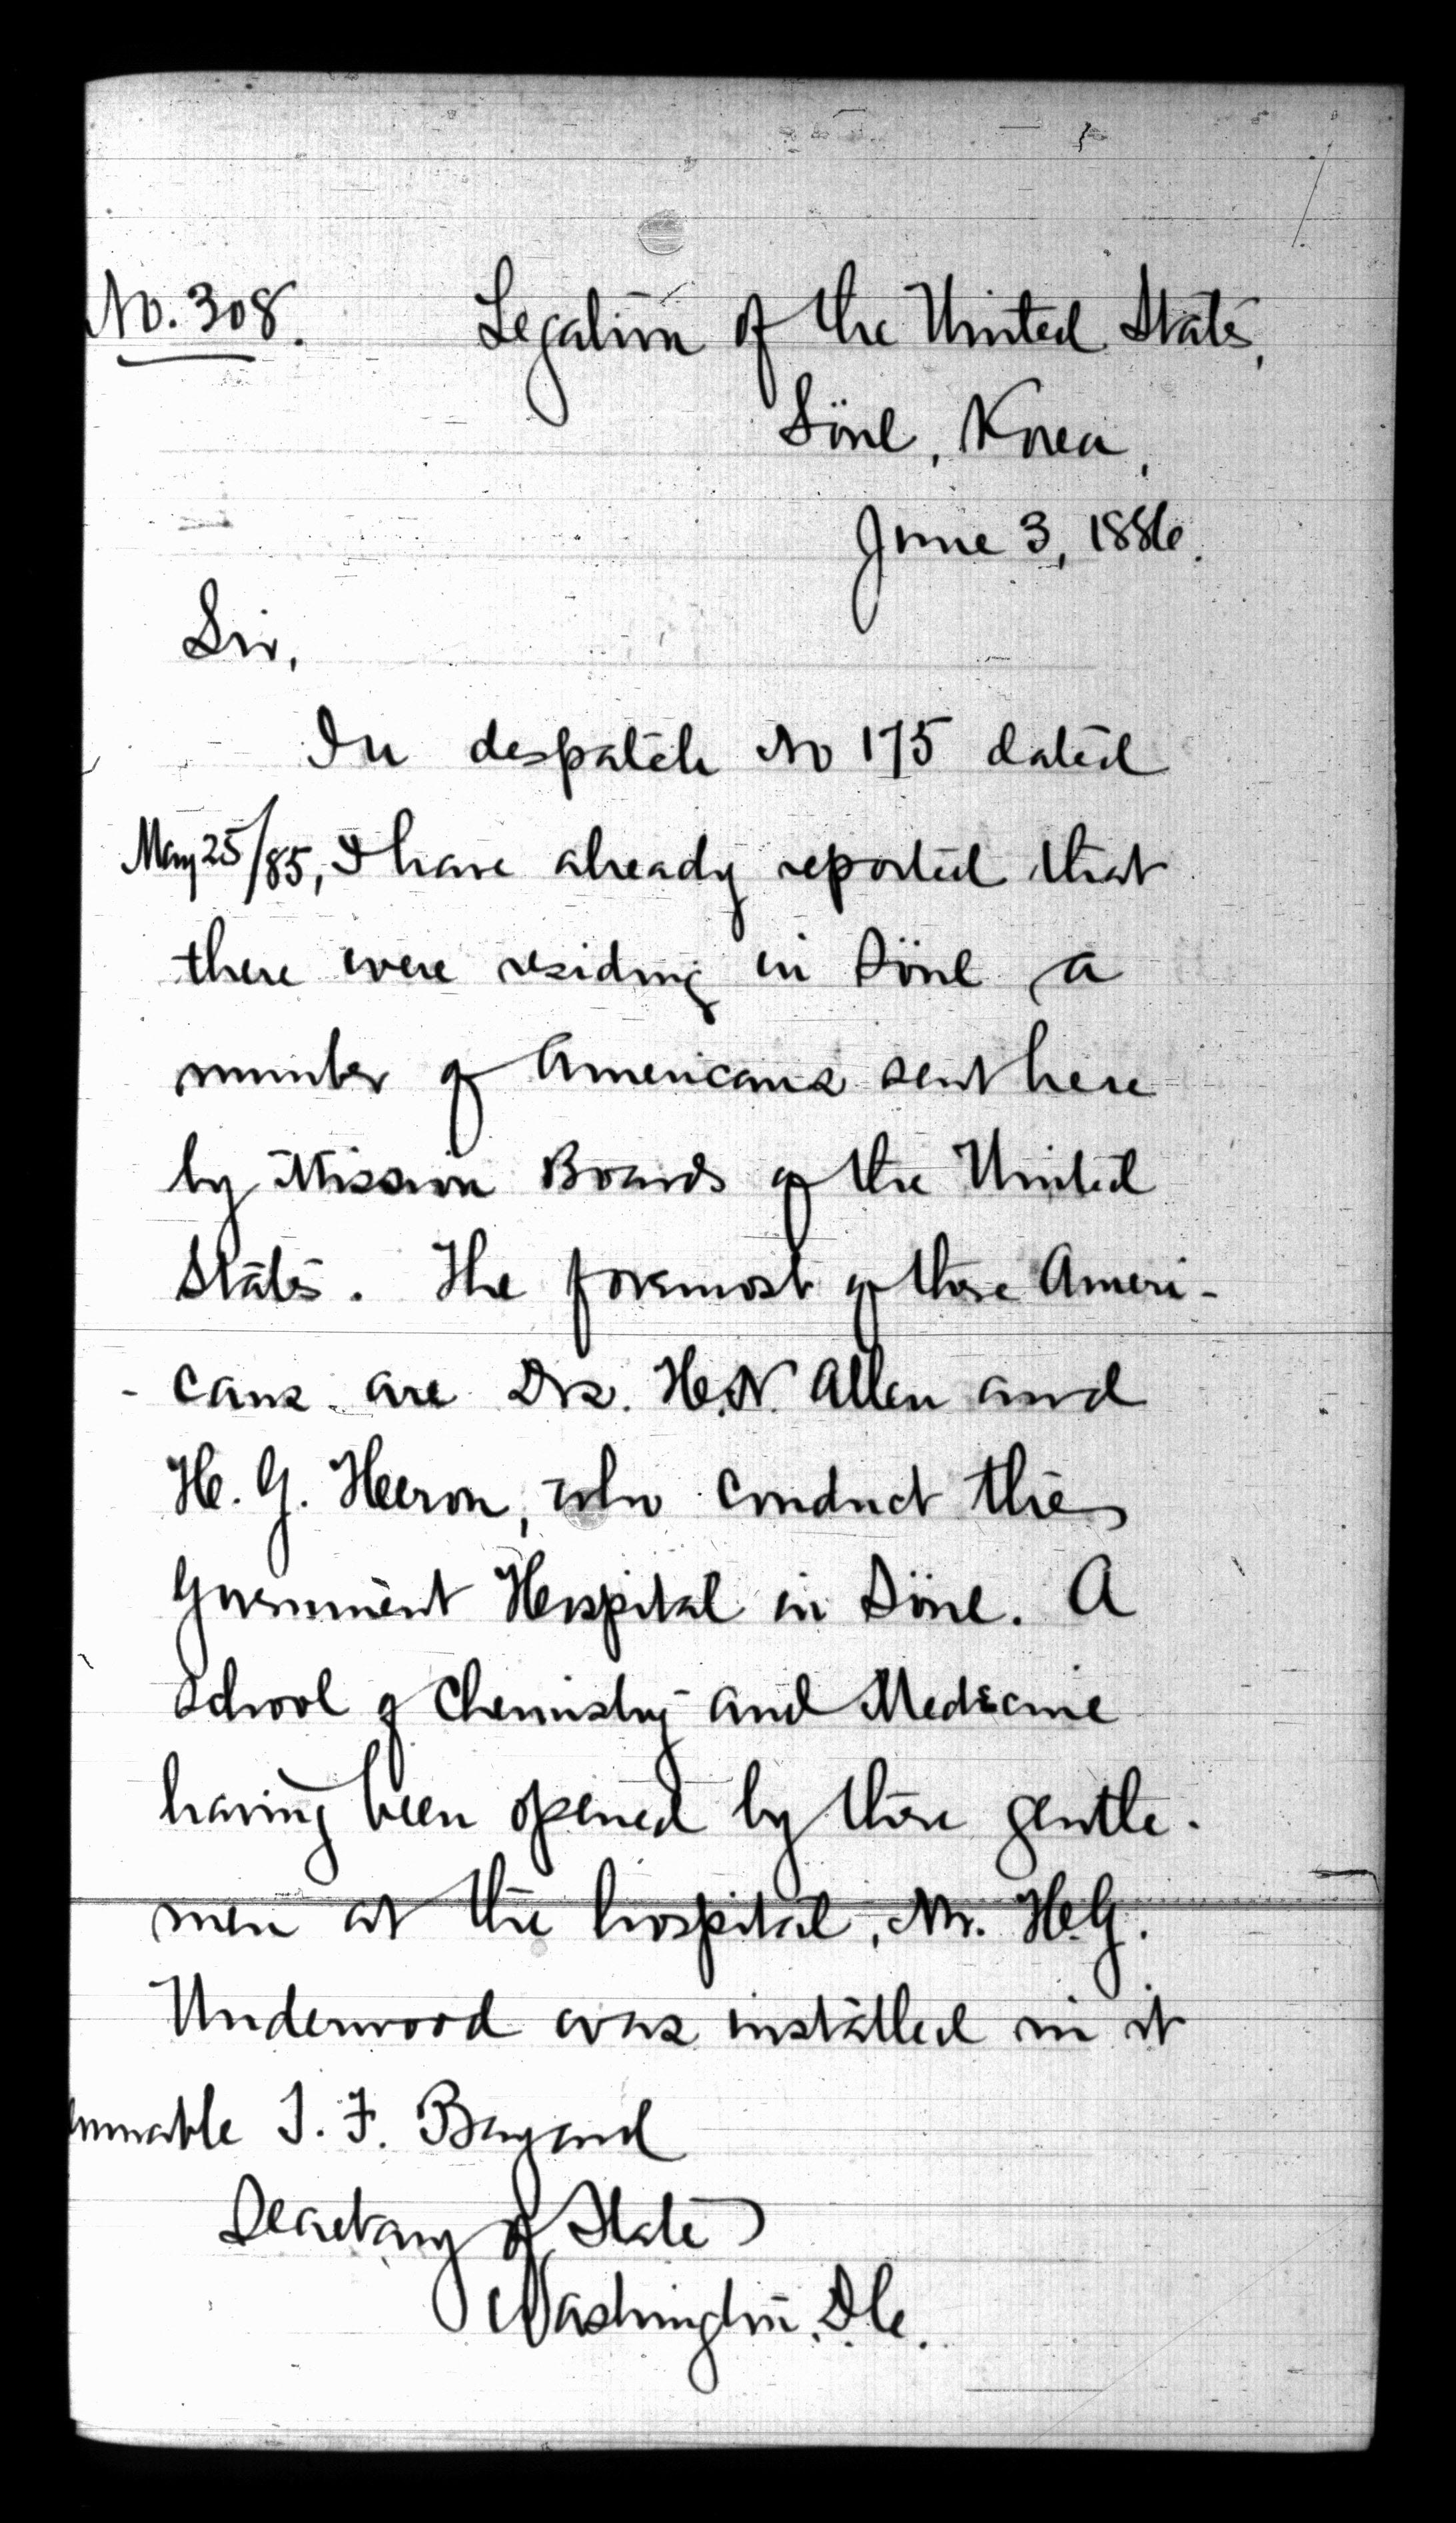 No. 308.
Legation of the United States,
Söul, Korea,
June 3, 1886.
Sir,
In despatch No 175 dated
May 25/85, I have already reported that
there were residing in Söul a
number of Americans sent here
by Mission Boards of the United
States. The foremost of these Ameri-
-cans are Drs. H.N. Allen and
H. G. Heeron, who conduct the
Government Hospital in Söul. A
School of Chemistry and Medicine
having been opened by these gentle-
men at the hospital, Mr. H.G.
Underwood was installed in it
onorable T. F. Bayard
Secretary of State
Washington, D.C.